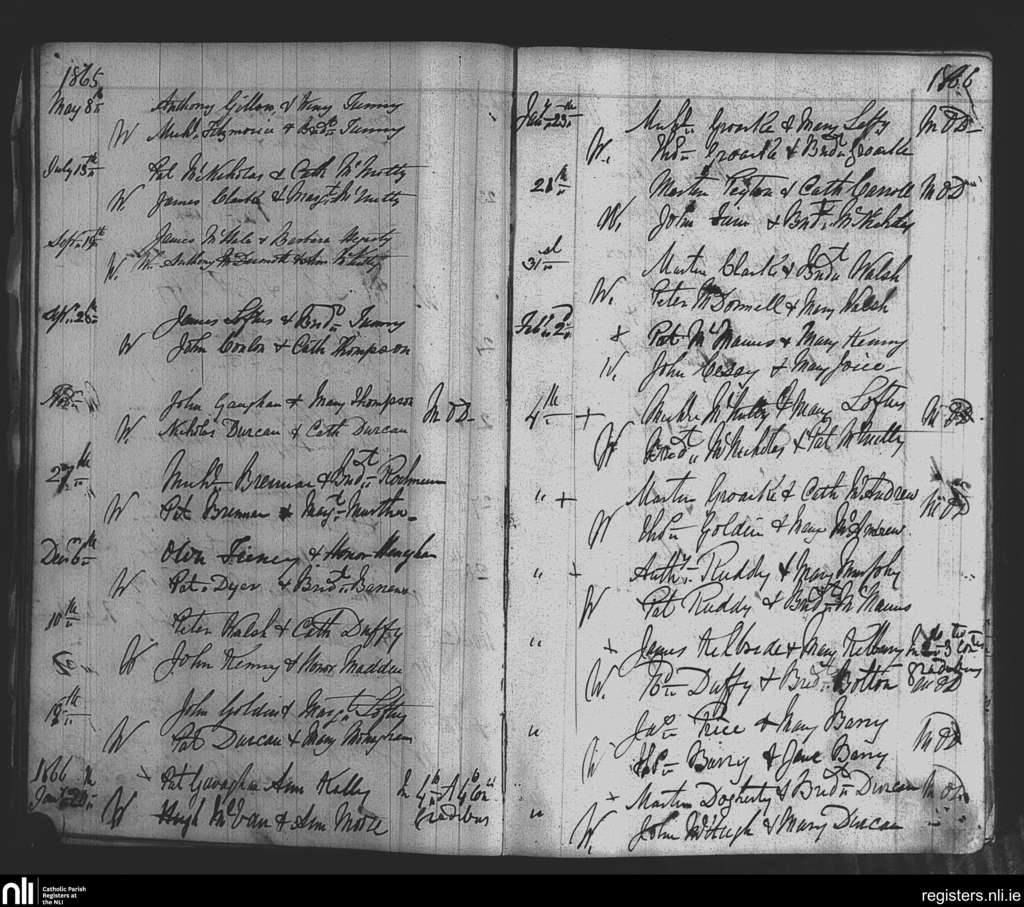 1865
May 8th Anthony Gillan & Winy Tunny
W Michl. Fitzmorice & Brdt. Tunny
July 13th Pat McNicholas & Cath McNutty
W James Clarke & Margt. McNutty
Sept. 19th James McHale & Barbara
W. Anthony McDermott & Ann McNutty
Sept. 28th James Loftus & Brdt. Tunny
W John Conlon & Cath Thompson
John Gaughan & Mary Thompson M & D
W. Nicholas Durcan & Cath Durcan
27th Michl. Brennan & Brdt.
W Pat Brennan & Margt.
Decr. 6th Owen Feeney & Honor Menghan
W Pat Dyer & Brdt.
10th Peter Walsh & Cath Duffy
W John Kenny & Honor Madden
19th John Golden & Margt. Loftus
W Pat Durcan & Mary Monghan
1866
Jany. 20th + Pat Gavaghan Ann Kelly In 4th & 4th Con.
W Hugh McEvan & Ann Moore gradibus
1866
Jany. 23rd Michl. Groarke & Mary Lofty M & D
W. Thos. Groarke & Brdt. Groarke
28th Martin Peyton & Cath Carroll M & D
W. John & Brdt. McNicholas
31st Martin Clarke & Brdt. Walsh
W. Peter McDonnell & Mary Walsh
Feby. 2nd + Pat McManus & Mary Kenny
W. John & Mary Joice
4th + McNutty & Mary Loftus M & D
W Brdt. McNicholas & Pat McNutty
" + Martin Groarke & Cath McAndrew M & D
W Thos. Golden & Mary McAndrew
" + Anthy. Ruddy & Mary Murphy
W Pat Ruddy & Brdt. McManus
" + James Kilbride & Mary Kilbany
W. Duffy & Brdt. Bolton gradibus M & D
" Jas. Price & Mary Barry M & D
W Thos. Barry & Jane Barry
" + Martin Dogherty & Brdt. Durcan M & D
W. John McHugh & Mary Durcan
nli
Catholic Parish
Registers at
the NLI
registers.nli.ie